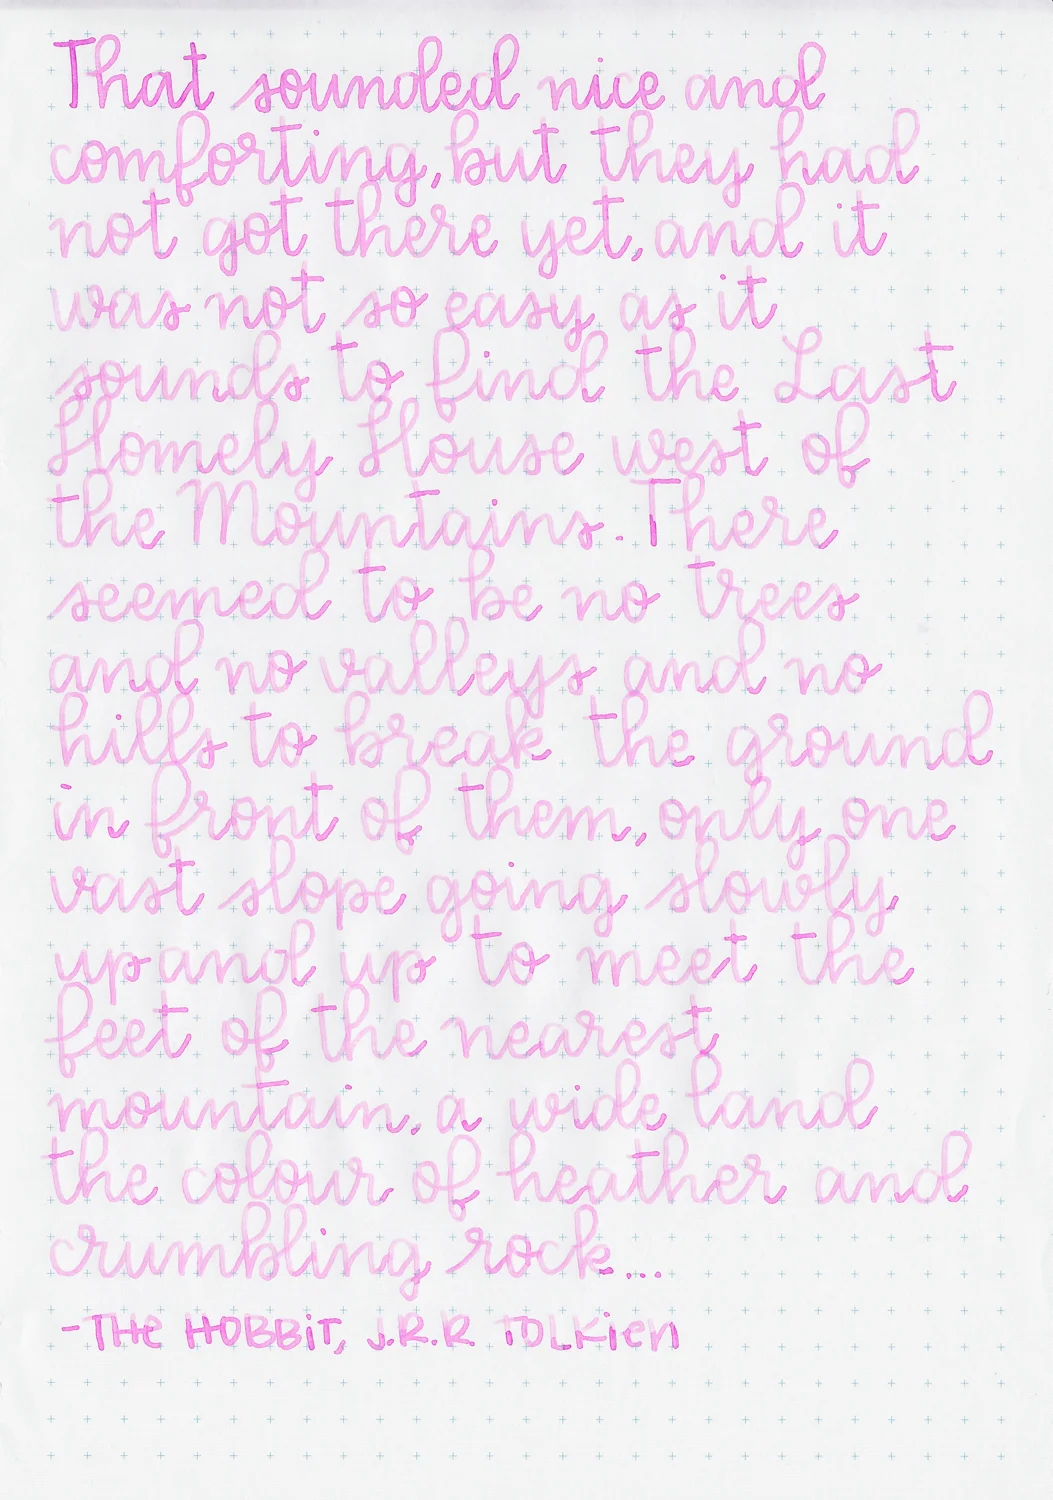 That sounded nice and
comforting, but they had
not got there yet, and it
was not so easy as it
sounds to find the Last
Homely House west of
the Mountains. There
seemed to be no trees
and no valleys and no
hills to break the ground
in front of them, only one
vast slope going slowly
up and up to meet the
feet of the nearest
mountain, a wide land
the colour of heather and
crumbling rock...
-THE HOBBIT, J.R.R TOLKIEN